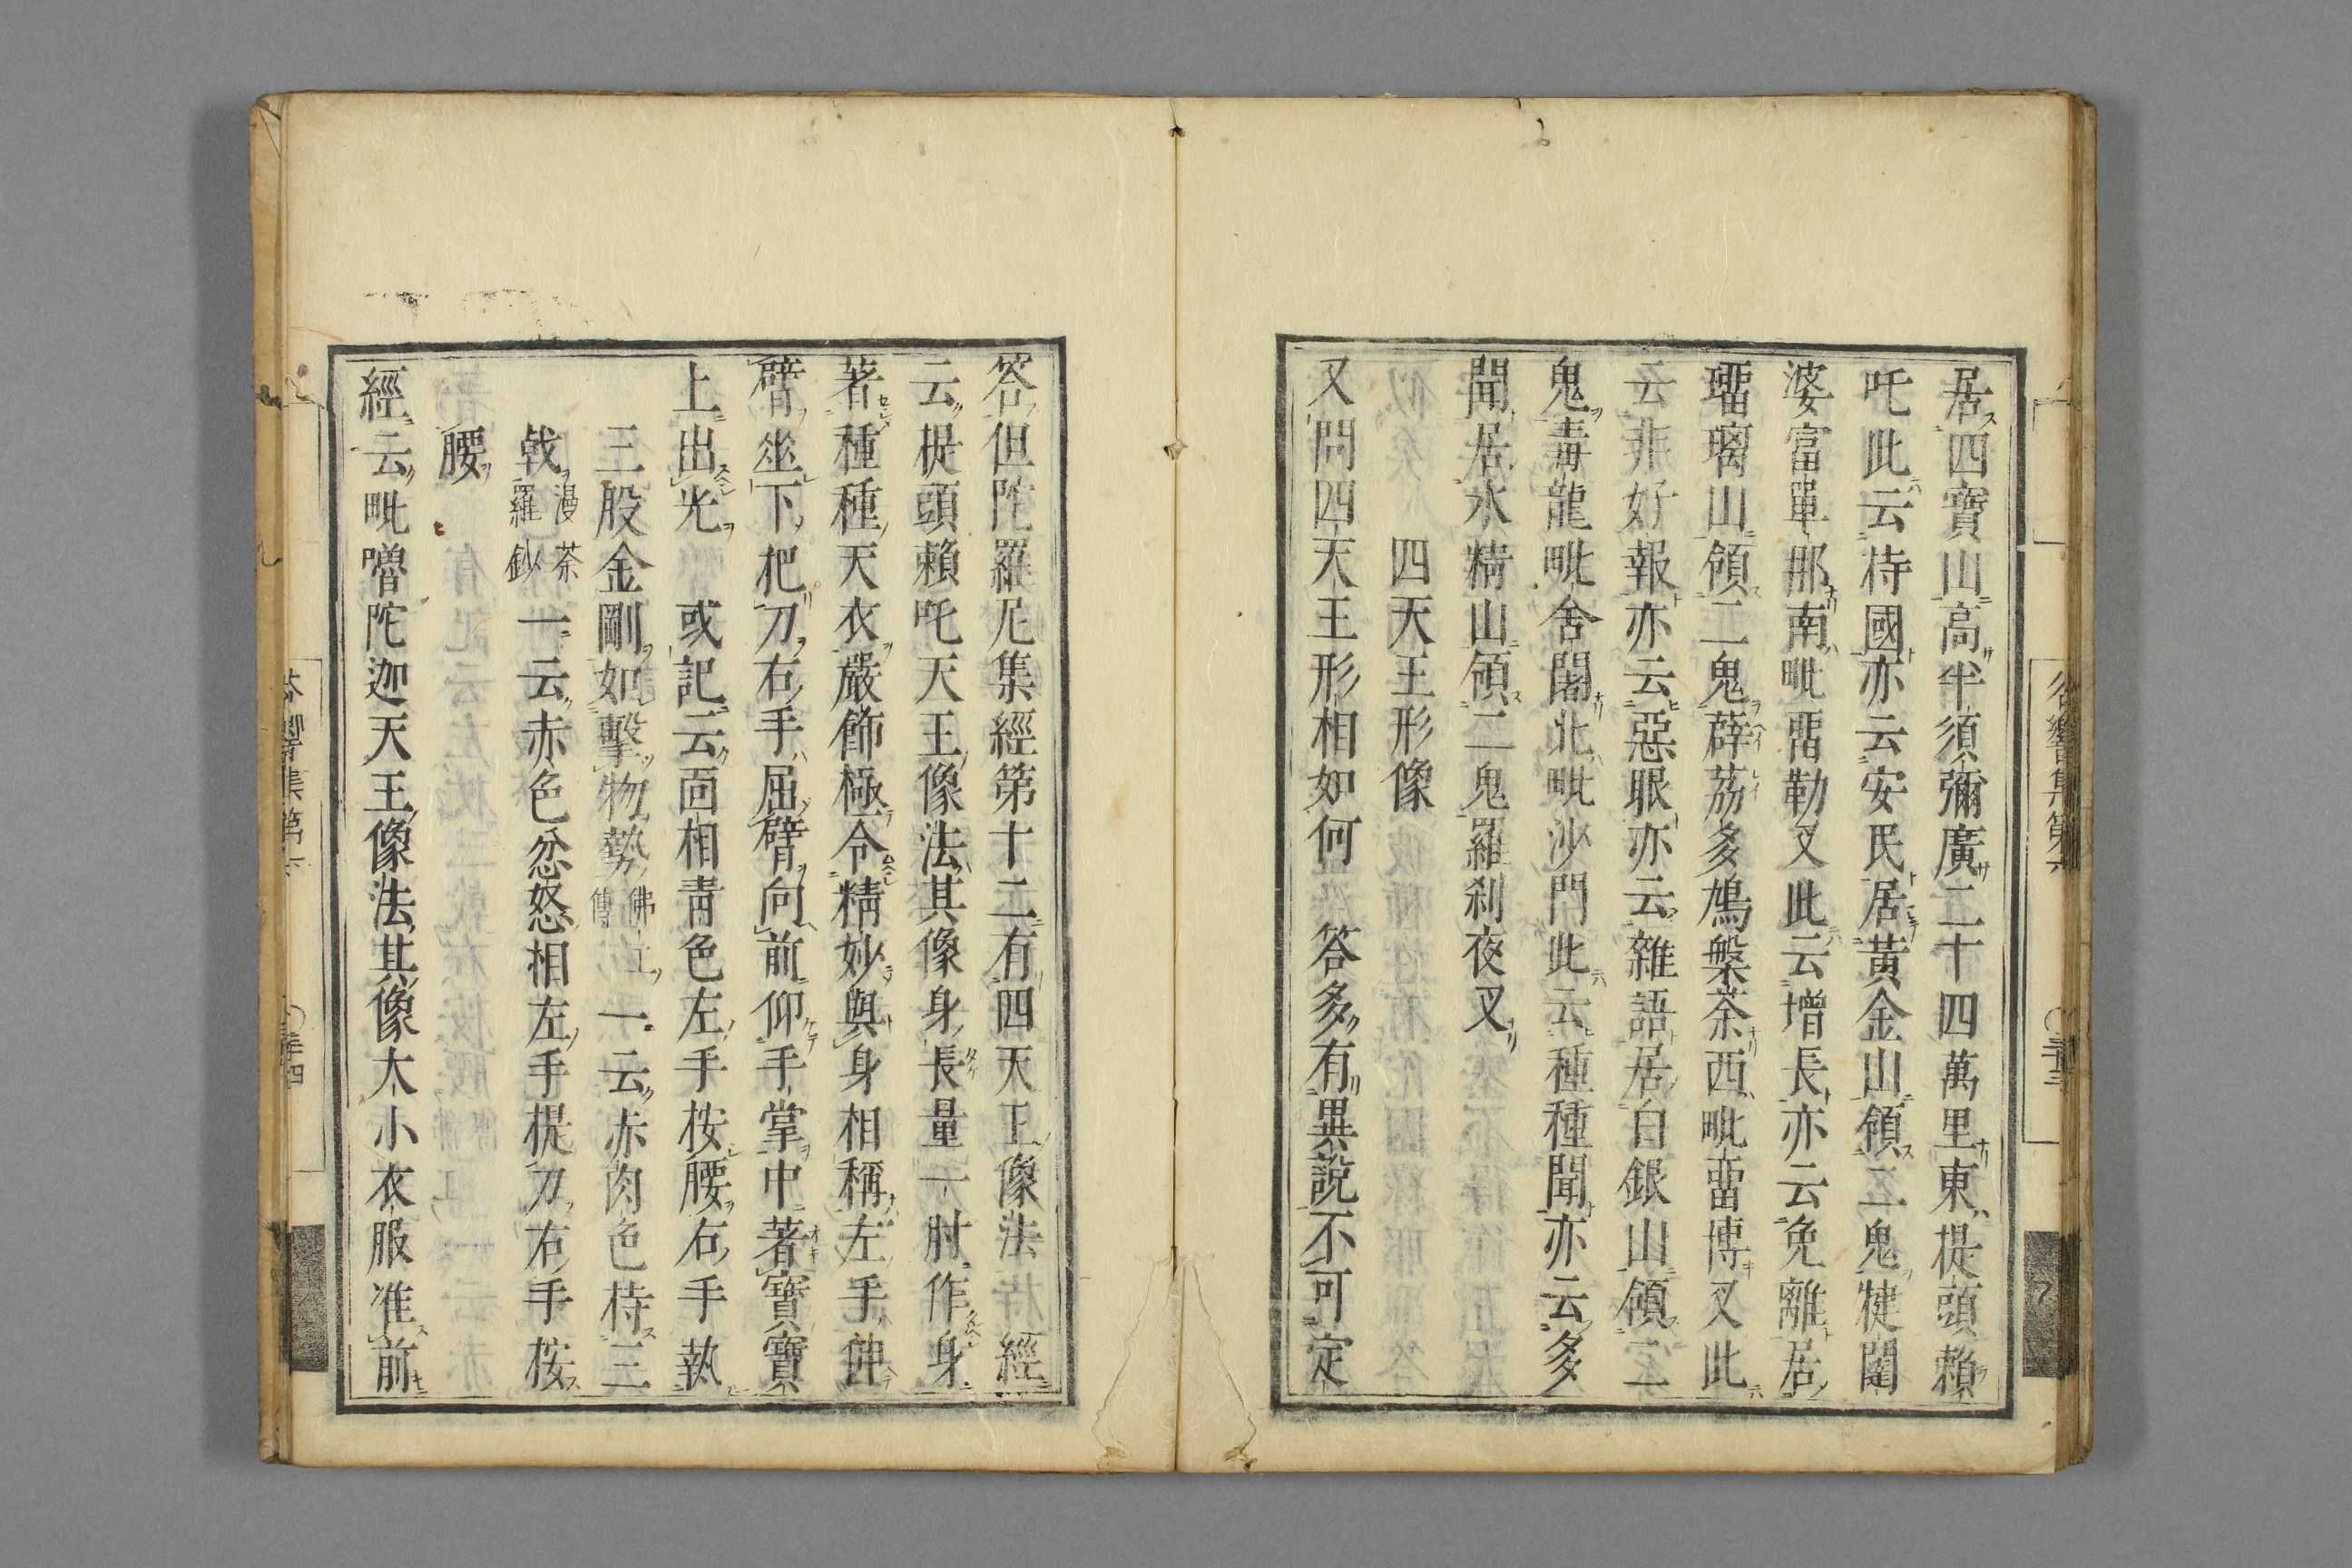 居四寶山高半須彌廣二十四萬里東提頭賴
吒此云持國亦云安民居黃金山領二鬼犍闥
婆富單那南毗畱勒叉此云增長亦云免離居
瑠璃山領二鬼薜荔多鳩槃茶西毗畱博叉此
云非好報亦云惡眼亦云雜語居白銀山領二
鬼毒龍毗舍闍北毗沙門此云種種聞亦云多
聞居水精山領二鬼羅刹夜叉
四天王形像
又問四天王形相如何 答多有異說不可定
答但陀羅尼集經第十二有四天王像法 經
云提頭賴吒天王像法其像身長量一肘作身
著種種天衣嚴飾極令精妙與身相稱左手伸
臂垂下把刀右手屈臂向前仰手掌中著寶寶
上出光 或記云面相青色左手按腰右手執
三股金剛如擊物勢佛工傳一云赤肉色持三
戟漫茶羅鈔一云赤色忿怒相左手提刀右手按
腰
經云毗嚕陀迦天王像法其像大小衣服准前